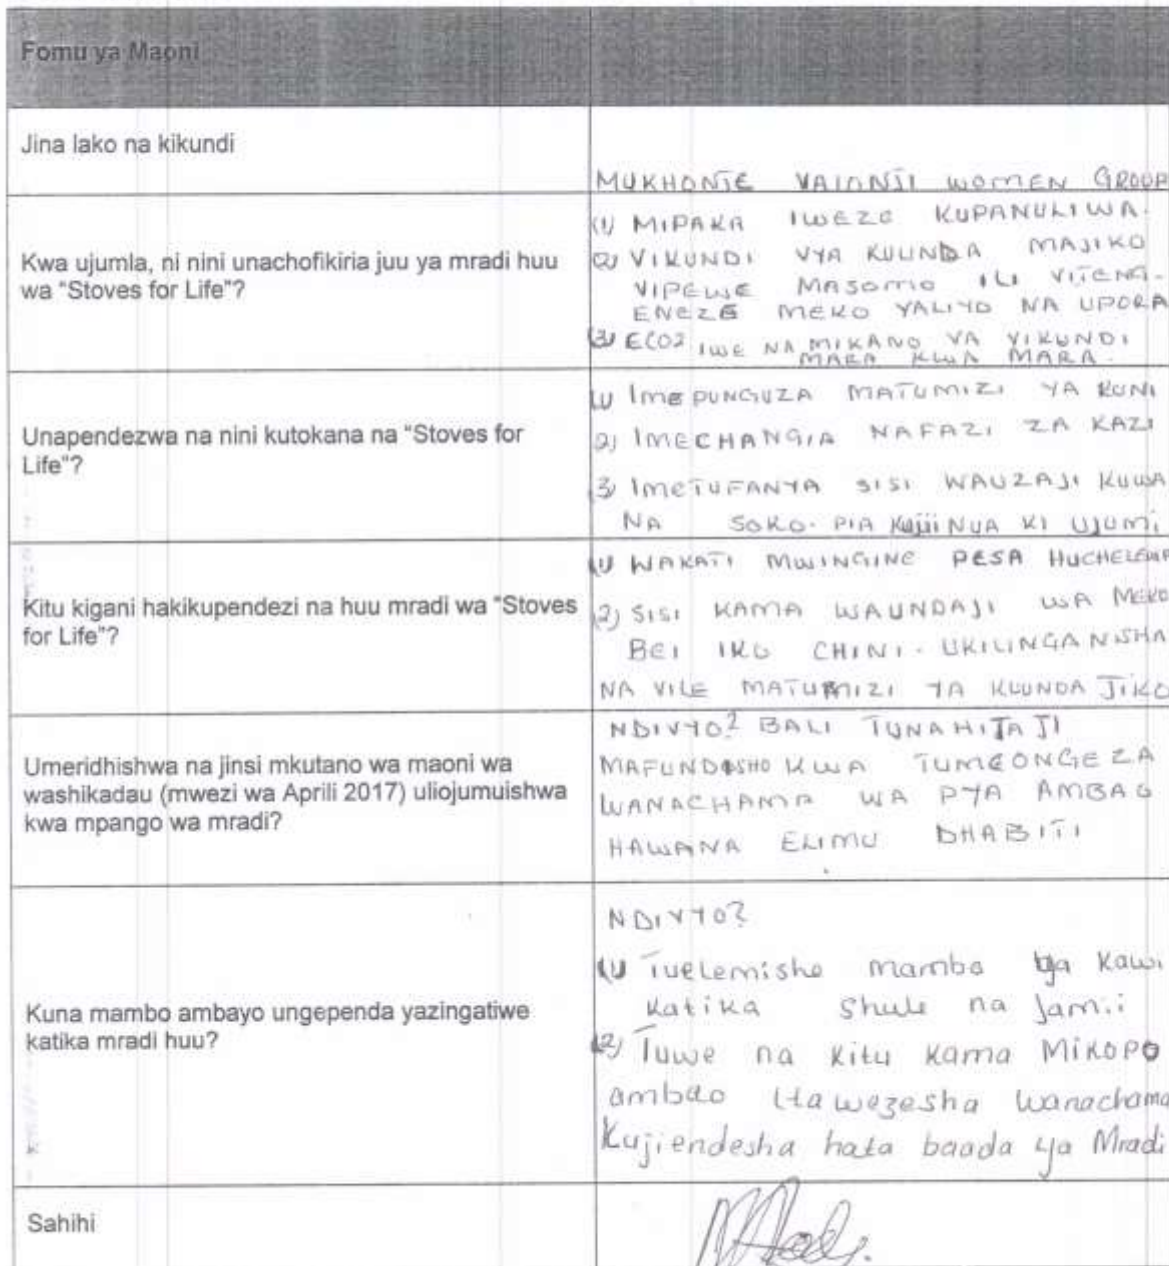 Fomu ya Maoni
Jina lako na kikundi
MUKHONJE VAIANJI WOMEN GROUP
Kwa ujumla, ni nini unachofikiria juu ya mradi huu
wa "Stoves for Life"?
(1) MIPAKA IWEZE KUPANULIWA.
(2) VIKUNDI VYA KUUNDA MAJIKO
VIPEWE MASOMO ILI VITENG-
ENEZE MEKO YALIYO NA UPORA
(3) ECO2 IWE NA MIKANO YA VIKUNDI
MARA KWA MARA.
Unapendezwa na nini kutokana na "Stoves for
Life"?
(1) IMEPUNGUZA MATUMIZI YA KUNI
2) IMECHANGIA NAFAZI ZA KAZI
3) IMETUFANYA SISI WAUZAJI KUWA
NA SOKO. PIA KUJIINUA KI UJUMI,
Kitu kigani hakikupendezi na huu mradi wa "Stoves
for Life"?
(1) WAKATI MWINGINE PESA HUCHELEWA
(2) SISI KAMA WAUNDAJI WA MEKO
BEI IKO CHINI. UKILINGANISHA
NA VILE MATUMIZI YA KUUNDA JIKO
Umeridhishwa na jinsi mkutano wa maoni wa
washikadau (mwezi wa Aprili 2017) uliojumuishwa
kwa mpango wa mradi?
NDIVYO? BALI TUNAHITAJI
MAFUNDISHO KWA TUMEONGEZA
WANACHAMA WA PYA AMBAO
HAWANA ELIMU DHABITI
Kuna mambo ambayo ungependa yazingatiwe
katika mradi huu?
NDIVYO?
(1) Tuelemishe mambo ya Kawi
Katika Shule na Jamii
(2) Tuwe na Kitu Kama MIKOPO
ambao itawezesha Wanachama
Kujiendesha hata baada ya Mradi
Sahihi